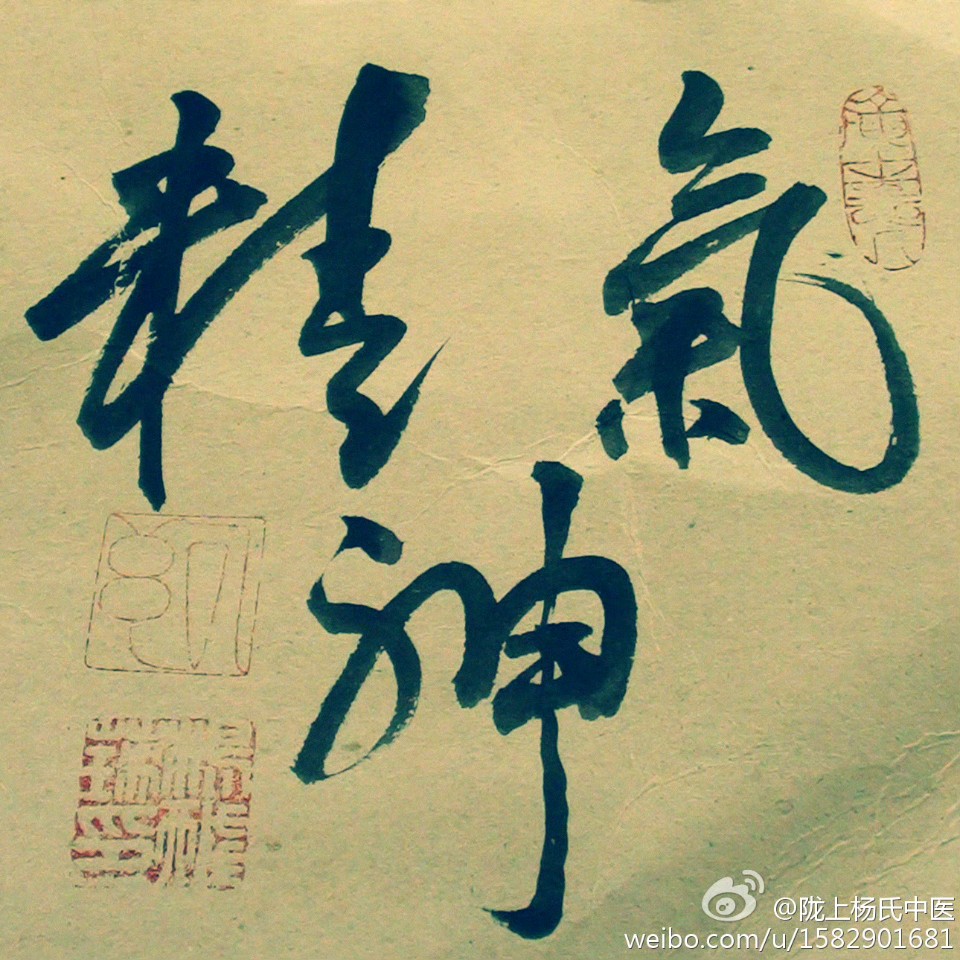 精氣
神
@陇上杨氏中医
weibo.com/u/1582901681